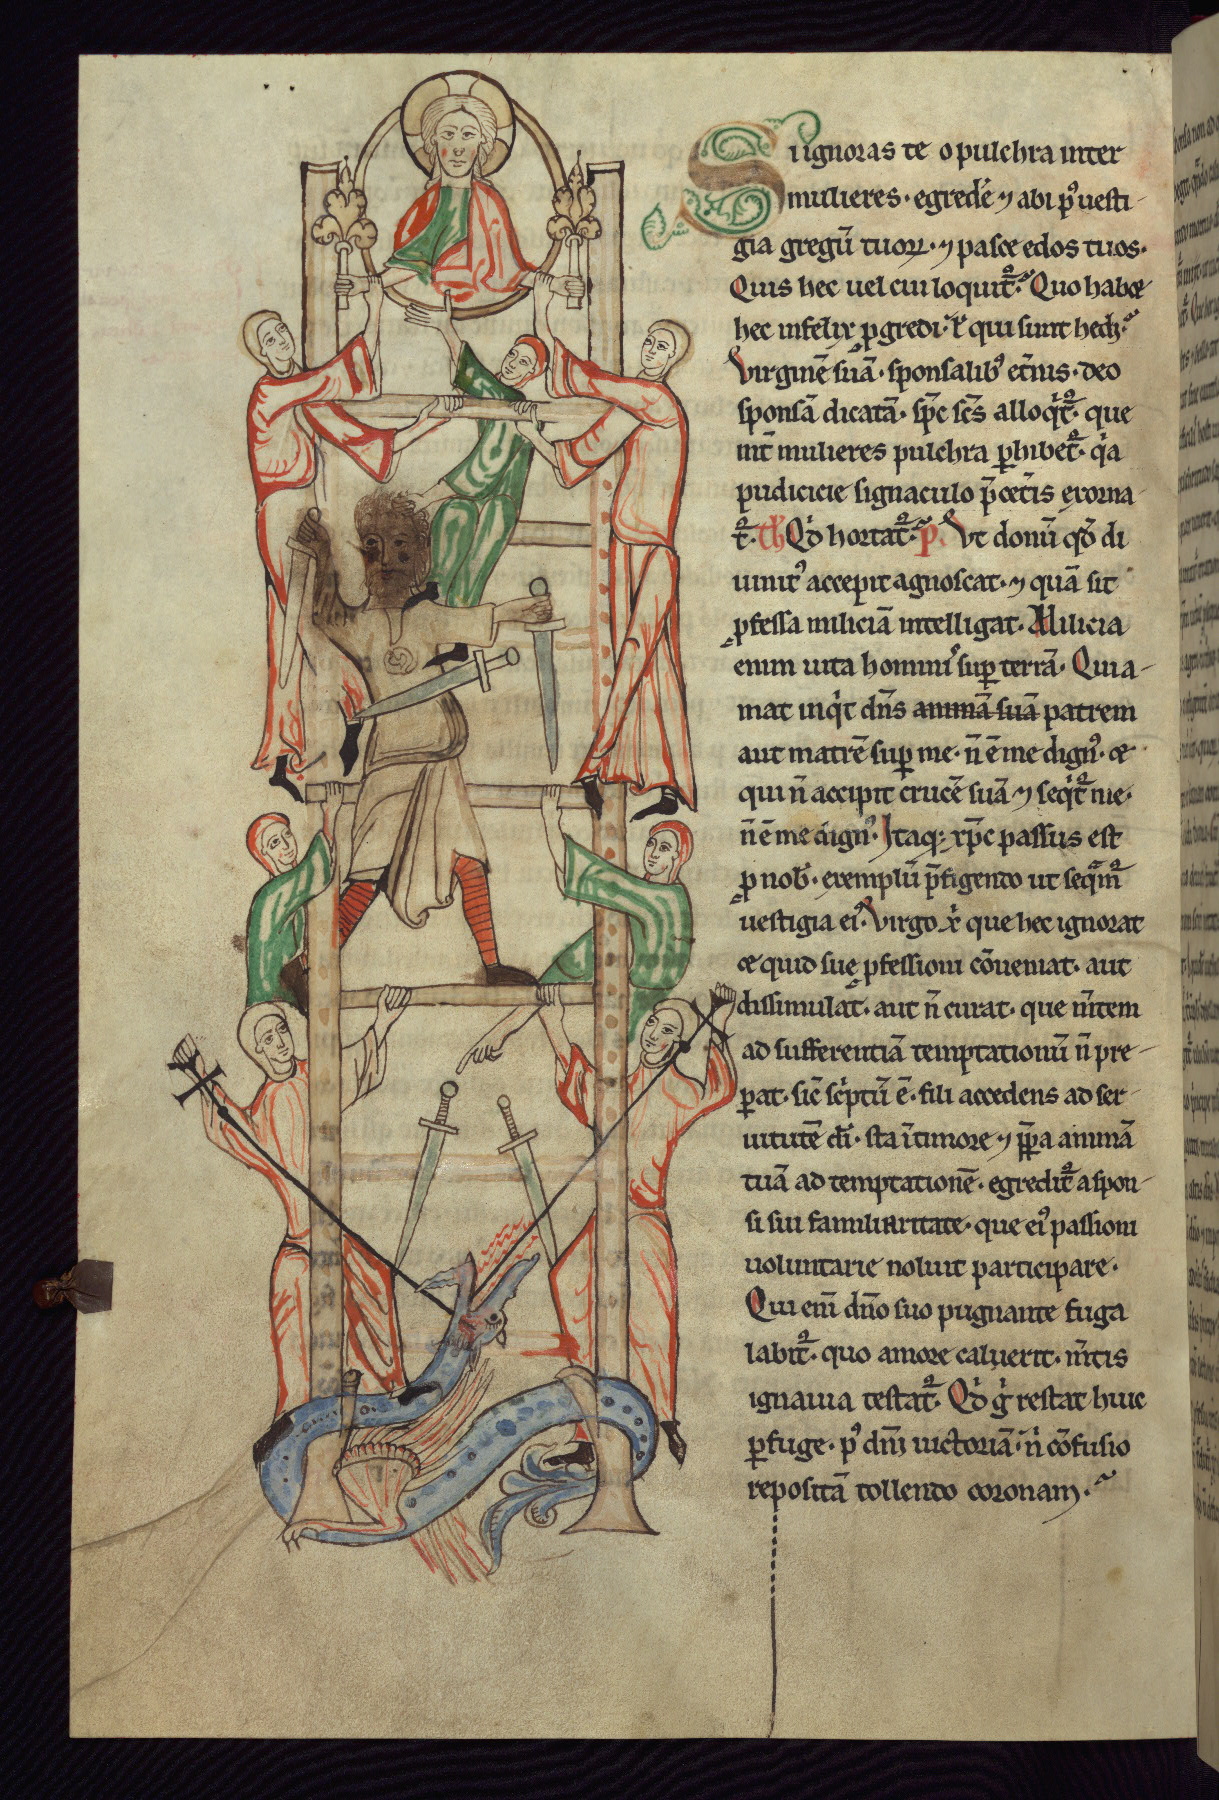 Si ignoras te o pulchra inter
mulieres · egredẽ ⁊ abi pꝰ uesti-
gia gregũ tuoꝝ · ⁊ pasce edos tuos ·
Quis hec uel cui loquit᷑ . Quo habet
hec infelix ꝓgredi · ł qui sunt hedi .
Virginẽ suã · sponsalibꝰ et̃nis · deo
sponsã dicatã · sp̃c sc̃s alloqͥt᷑ · que
int̃ mulieres pulchra ꝑhibet᷑ · qͥa
pudicicie signaculo p̃ cet̃is exorna
t᷑ . Th̃ Qͥd hortat᷑ . P . Vt donũ qd̃ di
uinitꝰ accepit agnoscat · ⁊ quã sit
ꝓfessa miliciã intelligat . Milicia
enim uita hominiˢ suꝑ terrã . Quia-
mat inqͥt dñs animã suã patrem
aut matrẽ suꝑ me · ñ ẽ me dignꝰ · et
qui ñ accipit crucẽ suã ⁊ seqͥt᷑ me ·
ñ ẽ me dignꝰ . Itaq; xp̃c passus est
ꝓ nob̃ · exemplũ p̃figendo ut seqͣm᷑
uestigia eiꝰ . Virgo xͥ que hec ignorat
et quid sue ꝓfessioni cõueniat · aut
dissimulat · aut ñ curat · que m̃tem
ad sufferentiã temptationũ ñ pre-
parat · sic̃ sc̃ptũ ẽ · fili accedens ad ser
uitutẽ dĩ · sta ĩ timore ⁊ p̃ꝑa animã
tuã ad temptationẽ · egredit᷑ a spon-
si sui familiaritate · que eiꝰ passioni
uoluntarie noluit participare ·
Qui enĩ dño suo pugnante fuga
labit᷑ · quo amore caluerit · m̃tis
ignauia testat᷑ . Qͥd gͥ restat huic
ꝑfuge · pꝰ dñi uictoriã · ñ cõfusio
repositã tollendo coronam .